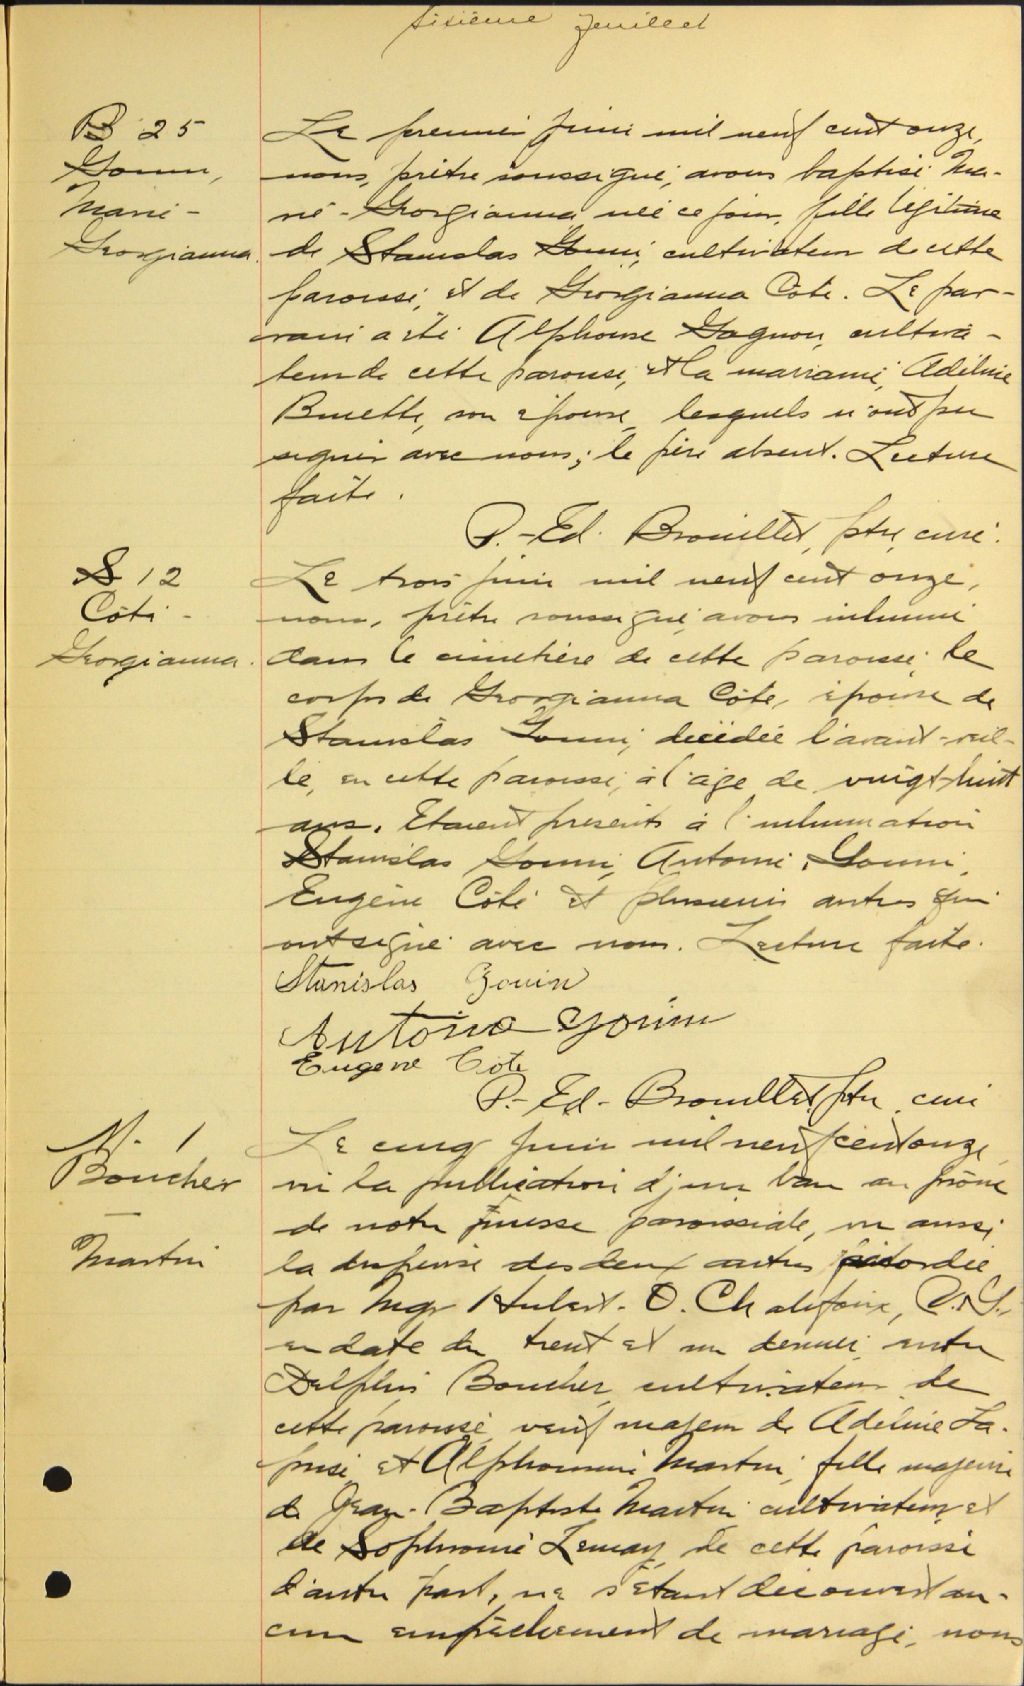 Sixième feuillet
B 25
Gouin,
Marie-
Georgianna.
Le premier juin mil neuf cent onze,
nous, prêtre soussigné, avons baptisé Ma-
rie-Georgianna née ce jour, fille légitime
de Stanislas Gouin, cultivateur de cette
paroisse, et de Georgianna Côté. Le par-
rain a été Alphonse Gagnon, cultiva-
teur de cette paroisse, et la marraine, Adéline
Buette, son épouse, lesquels n'ont pu
signer avec nous; le père absent. Lecture
faite.
P.-Ed. Brouillet, ptre, curé.
S 12
Côté -
Georgianna.
Le trois juin mil neuf cent onze,
nous, prêtre soussigné, avons inhumé
dans le cimetière de cette paroisse, le
corps de Georgianna Côté, épouse de
Stanislas Gouin, décédée l'avant-veil-
le, en cette paroisse, à l'âge de vingt-huit
ans. Etaient présents à l'inhumation
Stanislas Gouin, Antonio Gouin,
Eugène Côté et plusieurs autres qui
ont signé avec nous. Lecture faite.
Stanislas Gouin
Antonio Gouin
Eugene Coté
P.-Ed. Brouillet, ptre, curé
M. 1
Boucher
—
Martin
Le cinq juin mil neuf cent onze,
vu la publication d'un ban au prône
de notre messe paroissiale, vu aussi
la dispense des deux autres accordée
par Mgr Hubert-O. Chalifoux, V.G.,
en date du trent et un dernier, entre
Delphis Boucher, cultivateur de
cette paroisse, veuf majeur de Adéline La-
prise, et Alphonsine Martin, fille majeure
de Jean-Baptiste Martin cultivateur, et
de Sophronie Lemay, de cette paroisse
d'autre part, ne s'étant découvert au-
cun empêchement de mariage, nous